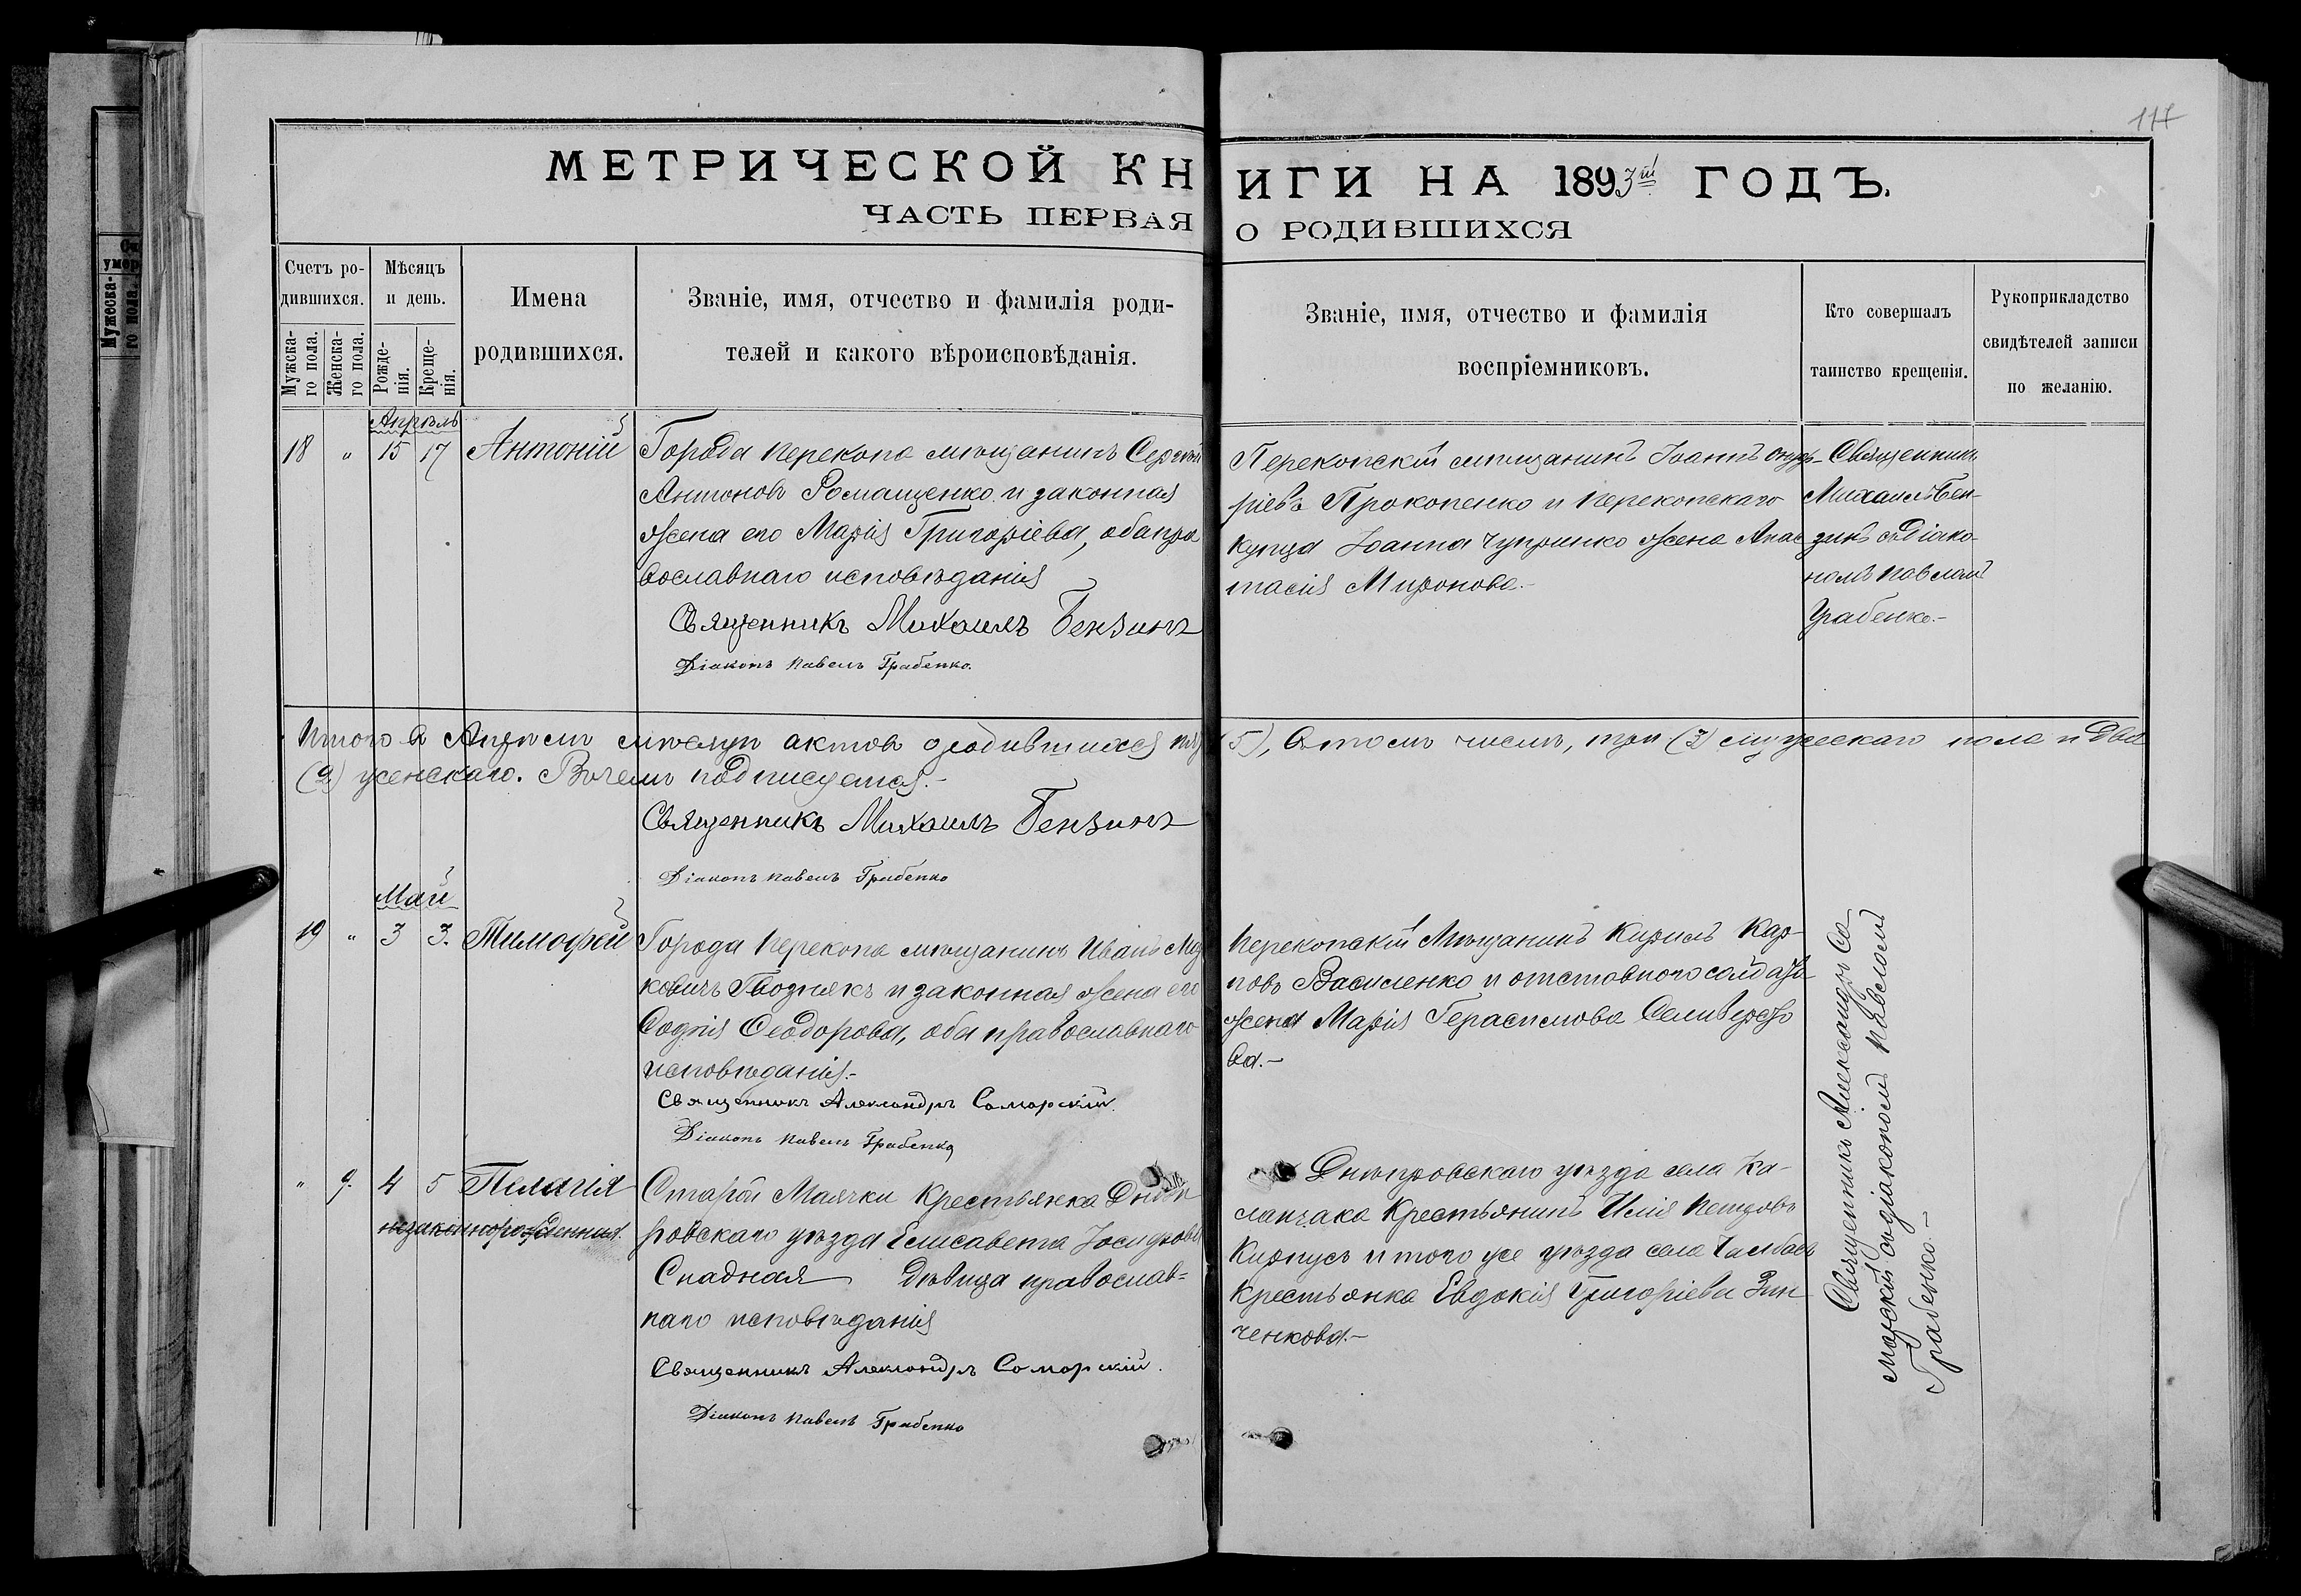 117
МЕТРИЧЕСКОЙ КНИГИ НА 1893ій ГОДЪ.
ЧАСТЬ ПЕРВАЯ О РОДИВШИХСЯ
Счетъ ро-
дившихся.
Мужска-
го пола.
Женска-
го пола.
Мѣсяцъ
и день.
Рожде-
нія.
Креще-
нія.
Имена
родившихся.
Званіе, имя, отчество и фамилія роди-
телей и какого вѣроисповѣданія.
Званіе, имя, отчество и фамилія
воспріемниковъ.
Кто совершалъ
таинство крещенія.
Рукоприкладство
свидѣтелей записи
по желанію.
Апрѣль
18 " 15 17 Антоній
Города Перекопа мѣщанинъ Сергій
Антоновъ Ромащенко и законная
жена его Марія Григоріева, оба пра
вославнаго исповѣданія
Священникъ Михаилъ Бензинъ
Діаконъ Павелъ Грабенко.
Перекопскій мѣщанинъ Іоаннъ
ріевъ Прокопенко и Перекопскаго
купца Іоанна Чупринко жена Анас
тасія Миронова.-
Священникъ
Михаилъ Бен-
зинъ съ Діако-
номъ Павломъ
Грабенко.-
Итого въ Апрѣлѣ мѣсяцѣ актовъ о родившихся (5), въ томъ числѣ, три (3) мужескаго пола и два
(2) женскаго. Въ чемъ подписуемся.-
Священникъ Михаилъ Бензинъ
Діаконъ Павелъ Грабенко
Май
19 " 3 3. Тимофей
Города Перекопа мѣщанинъ Иванъ
ковичъ Гвозднякъ и законная жена его
Софія Ѳеодорова, оба православнаго
исповѣданія.-
Священникъ Александръ Соморскій.
Діаконъ Павелъ Грабенко
Перекопскій Мѣщанинъ Кирилъ Кар-
повъ Василенко и отставного солдата
жена Марія Герасимова Селиверсто
ва.-
" 9. 4 5 Пелагія
незаконнорожденная.
Старой Маячки крестьянка Днѣп
ровскаго уѣзда Елисавета Іосифова
Спадная дѣвица православ=
наго исповѣданія
Священникъ Александръ Соморскій.
Діаконъ Павелъ Грабенко
Днѣпровскаго уѣзда села Ка-
ланчака крестьянинъ Илія Петровъ
Кирпусъ и того же уѣзда села Чалбасъ
крестьянка Евдокія Григоріева Зин
ченкова.-
Священникъ Александръ Со
морскій съ діакономъ Павломъ
Грабенко.-